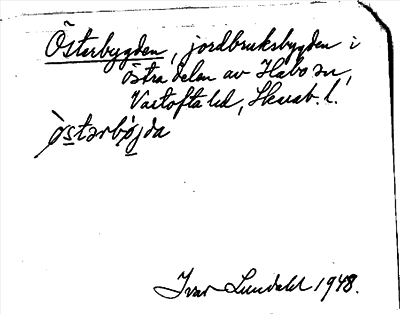 Östarbygden, jordbruksbygden i
östra delen av Habo sn,
Vartofta hd, Skarab. l.
östərbi̯gda
Ivar Lundahl 1948.